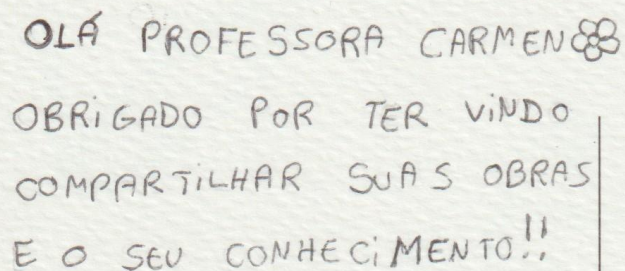 OLÁ PROFESSORA CARMEN
OBRIGADO POR TER VINDO
COMPARTILHAR SUAS OBRAS
E O SEU CONHECIMENTO!!